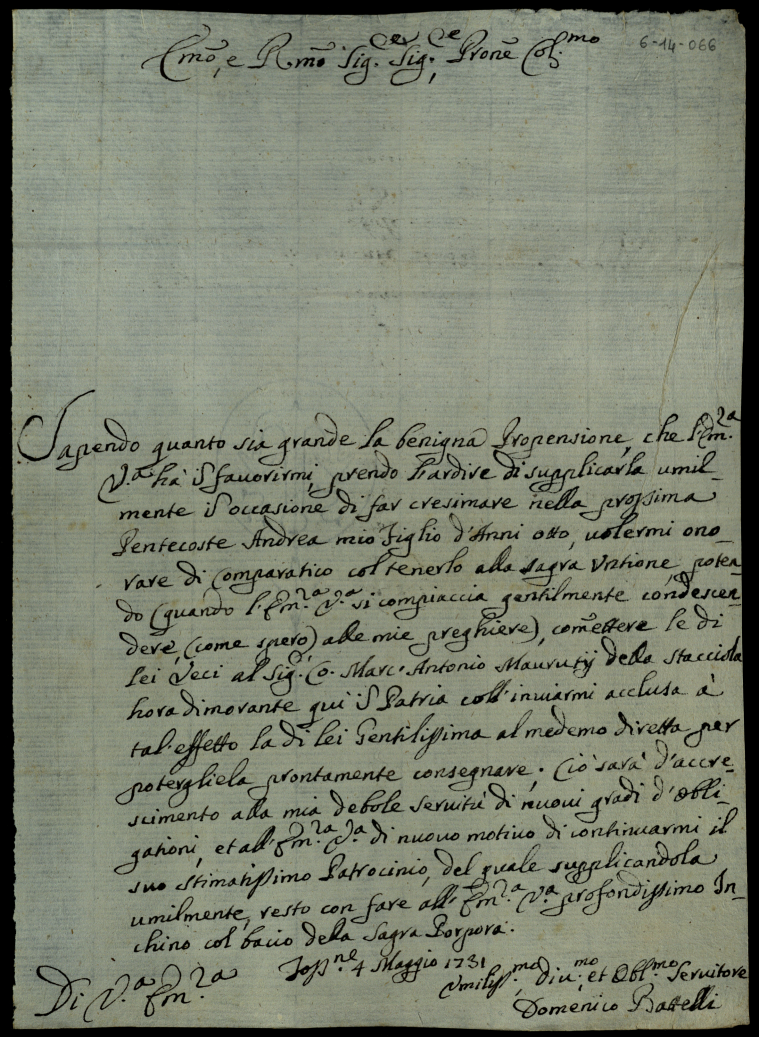 6-14-066
Emo, e Rmo Sig.r Sig.re, Prone Col.mo
Sapendo quanto sia grande la benigna Propensione, che l'Em.za
V.a hà in favorirmi, prendo l'ardire di supplicarla umil-
mente in occasione di far cresimare nella prossima
Pentecoste Andrea mio Figlio d'Anni otto, volermi ono-
rare di Comparatico col tenerlo alla sagra Untione, poten-
do (quando l'Em.za V.a si compiaccia gentilmente condescen-
dere, (come spero) alle mie preghiere), comettere le di
lei Veci al Sig.r Co. Marc'Antonio Maurutij della Stacciola
hora dimorante qui in Patria coll'inviarmi acclusa à
tal'effetto la di lei Gentilissima al medemo diretta per
potergliela prontamente consegnare. Ciò sarà d'accre-
scimento alla mia debole servitù di nuovi gradi d'obli-
gationi, et all'Em.za V.a di nuovo motivo di continuarmi il
suo stimatissimo Patrocinio, del quale supplicandola
umilmente, resto con fare all'Em.za V.a profondissimo In-
chino col bacio della Sagra Porpora.
Di V.a Em.za
Foss.ne 4 Maggio 1731
Umiliss.mo, div.mo, et Obl.mo Servitore
Domenico Battelli